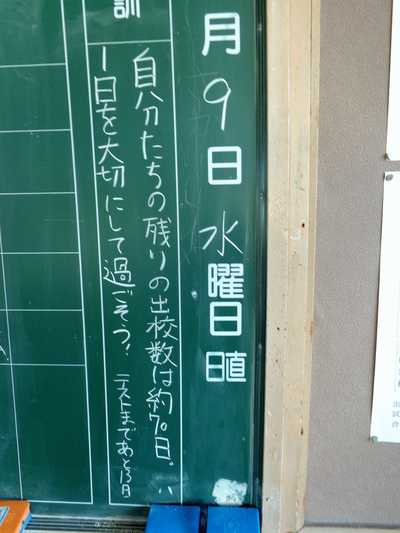 月9日水曜日 日直
訓
自分たちの残りの出校数は約70日。
1日を大切にして過ごそう！ テストまであと13日